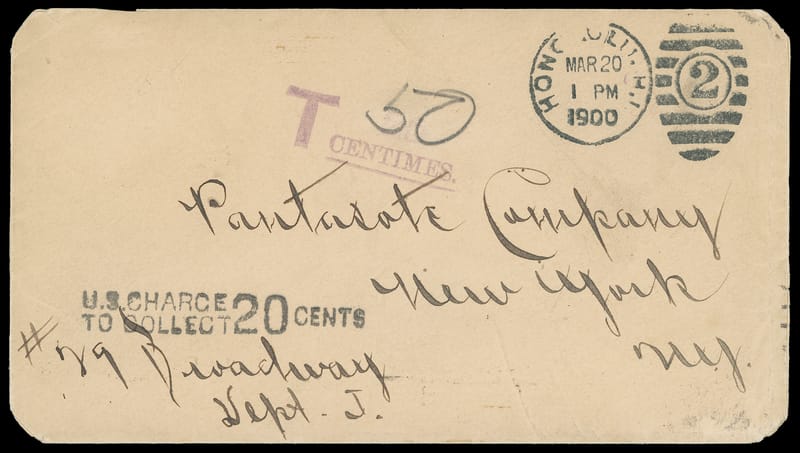 HONOLULU. H.I.
MAR 20
1 PM
1900
2
T 50
CENTIMES.
Pantasote Company
New York
N.Y.
U.S. CHARGE
TO COLLECT 20 CENTS
# 29 Broadway
Dept. J.